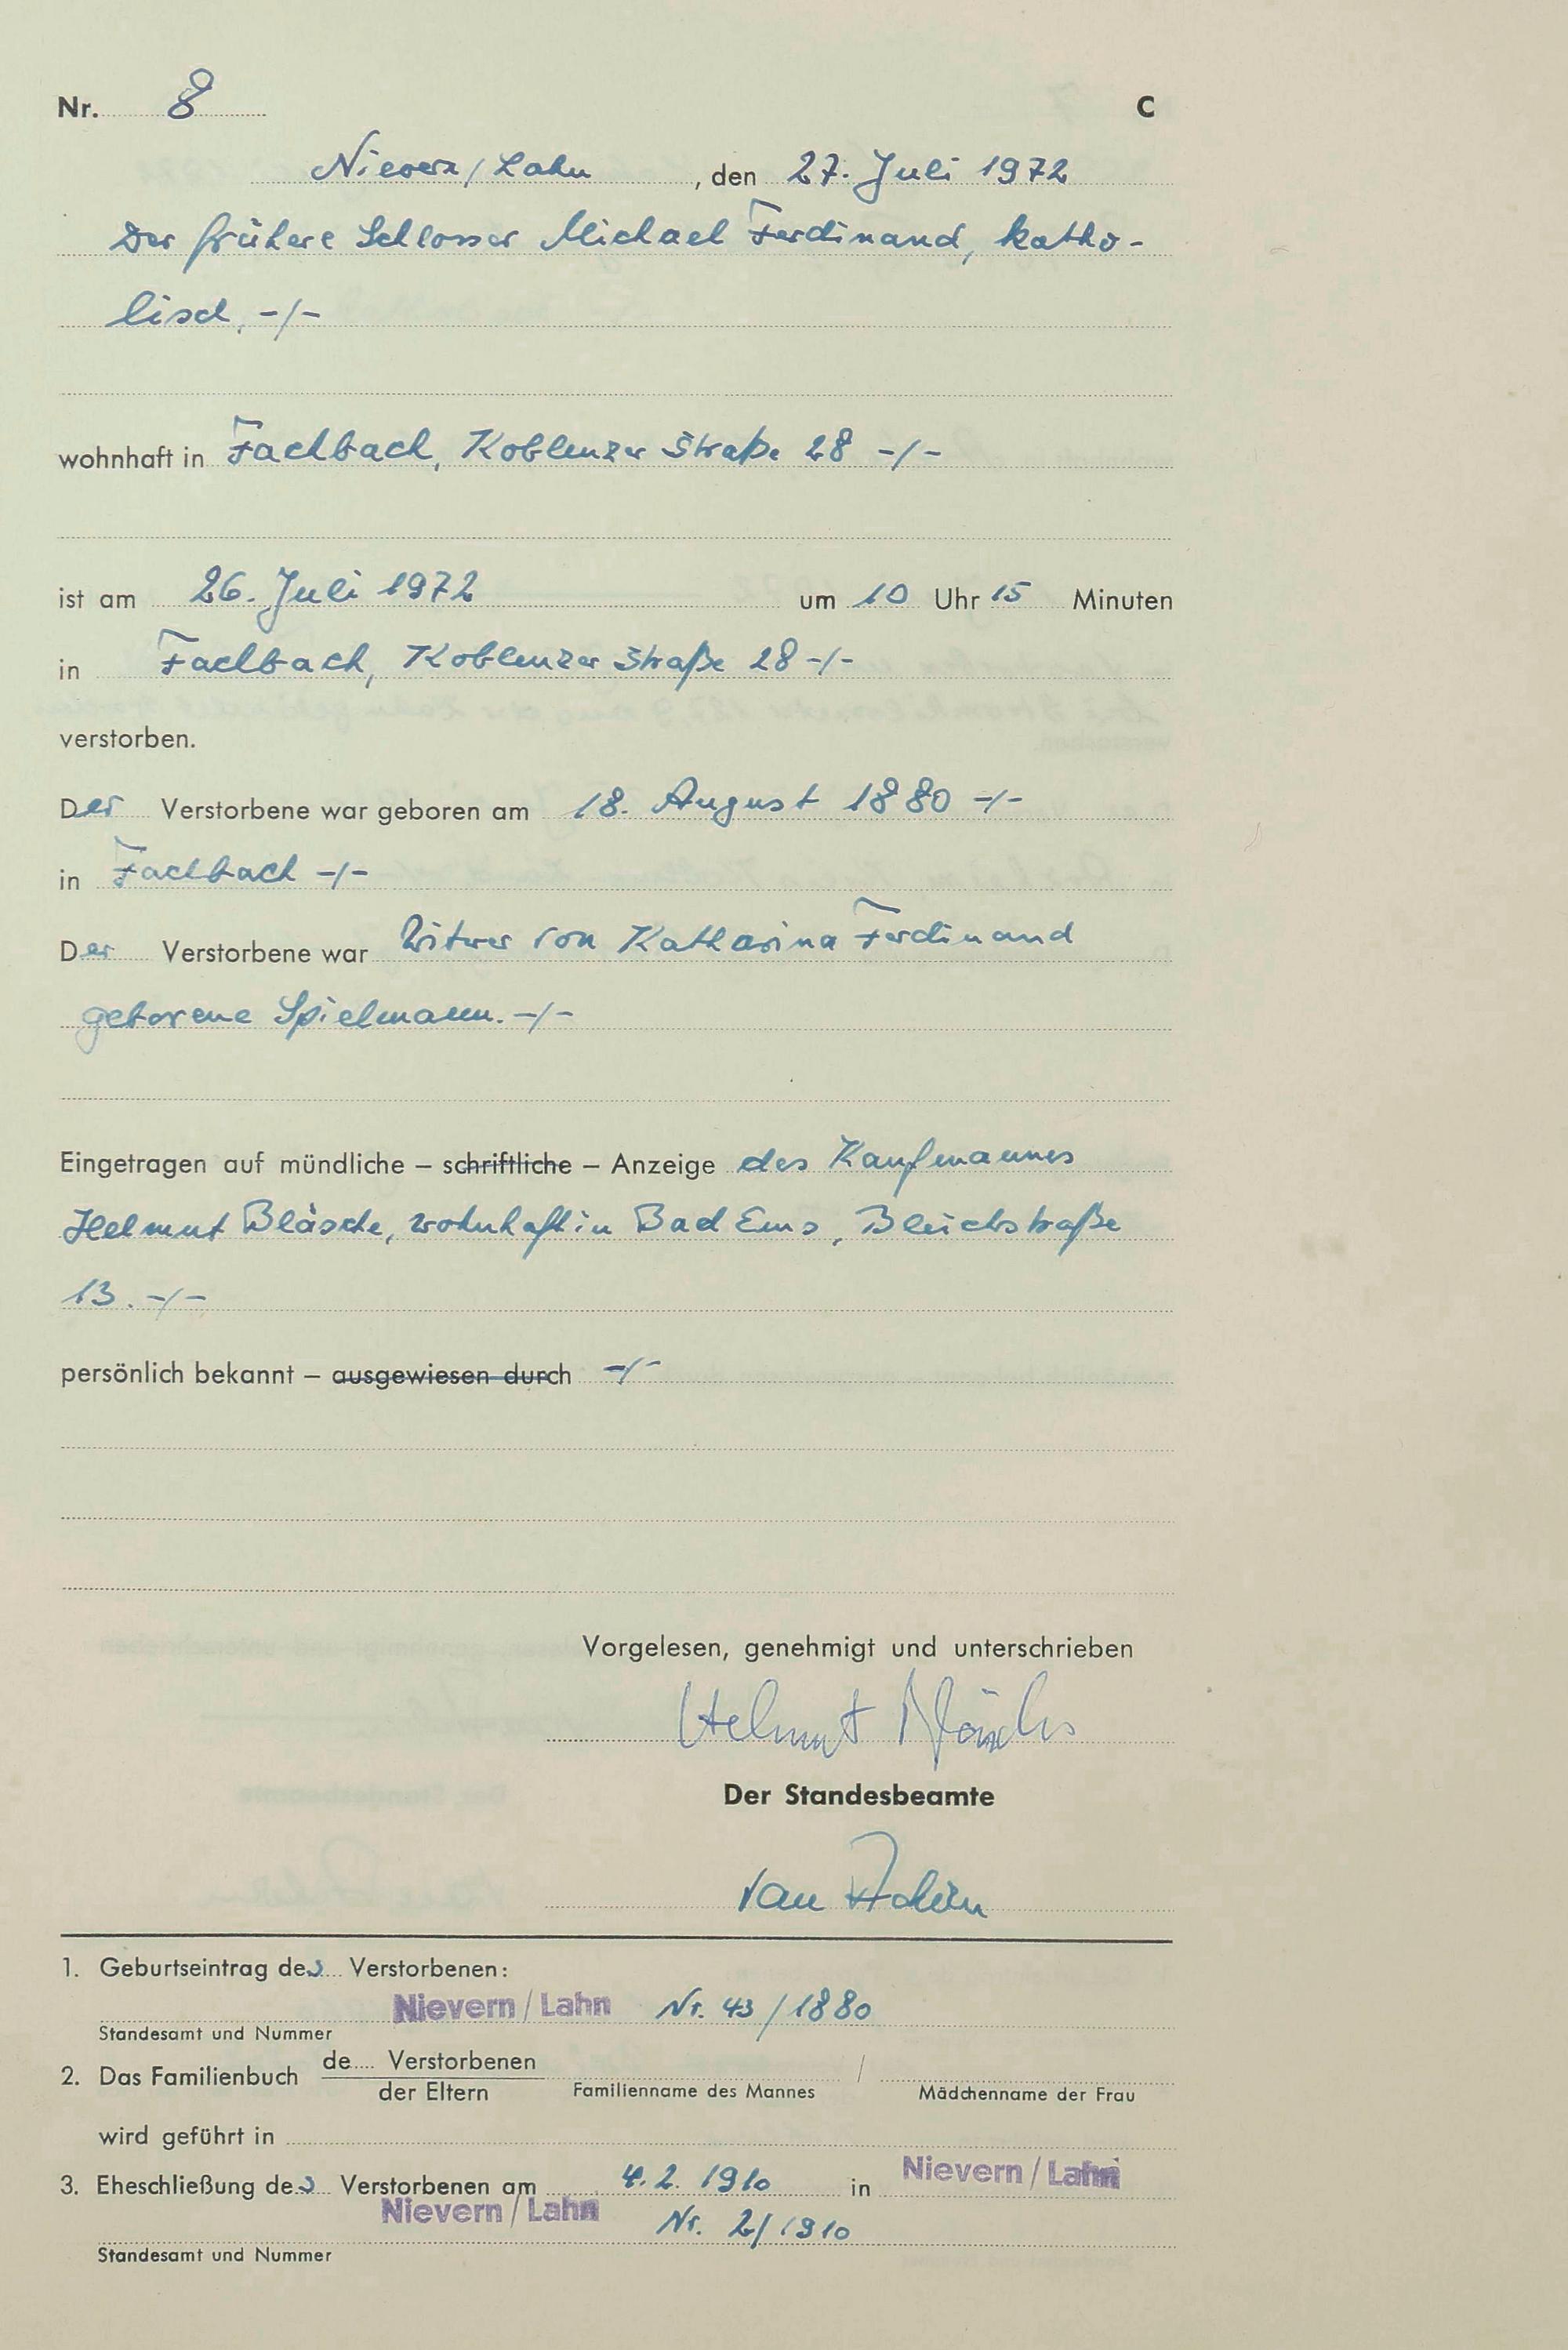 Nr. 8 C
Nievern/Lahn, den 27. Juli 1972
Der frühere Schlosser Michael Ferdinand, katho-
lisch. -/-
wohnhaft in Fachbach, Koblenzer Straße 28 -/-
ist am 26. Juli 1972 um 10 Uhr 15 Minuten
in Fachbach, Koblenzer Straße 28 -/-
verstorben.
Der Verstorbene war geboren am 18. August 1880 -/-
in Fachbach -/-
Der Verstorbene war Witwer von Katharina Ferdinand
geborene Spielmann. -/-
Eingetragen auf mündliche – schriftliche – Anzeige des Kaufmannes
Helmut Bläsche, wohnhaft in Bad Ems, Bleichstraße
13. -/-
persönlich bekannt – ausgewiesen durch -/-
Vorgelesen, genehmigt und unterschrieben
Helmut Bläsche
Der Standesbeamte
van
1. Geburtseintrag des Verstorbenen:
Nievern/Lahn Nr. 43/1880
Standesamt und Nummer
2. Das Familienbuch de Verstorbenen /
der Eltern Familienname des Mannes Mädchenname der Frau
wird geführt in
3. Eheschließung des Verstorbenen am 4.2.1910 in Nievern/Lahn
Nievern/Lahn Nr. 2/1910
Standesamt und Nummer